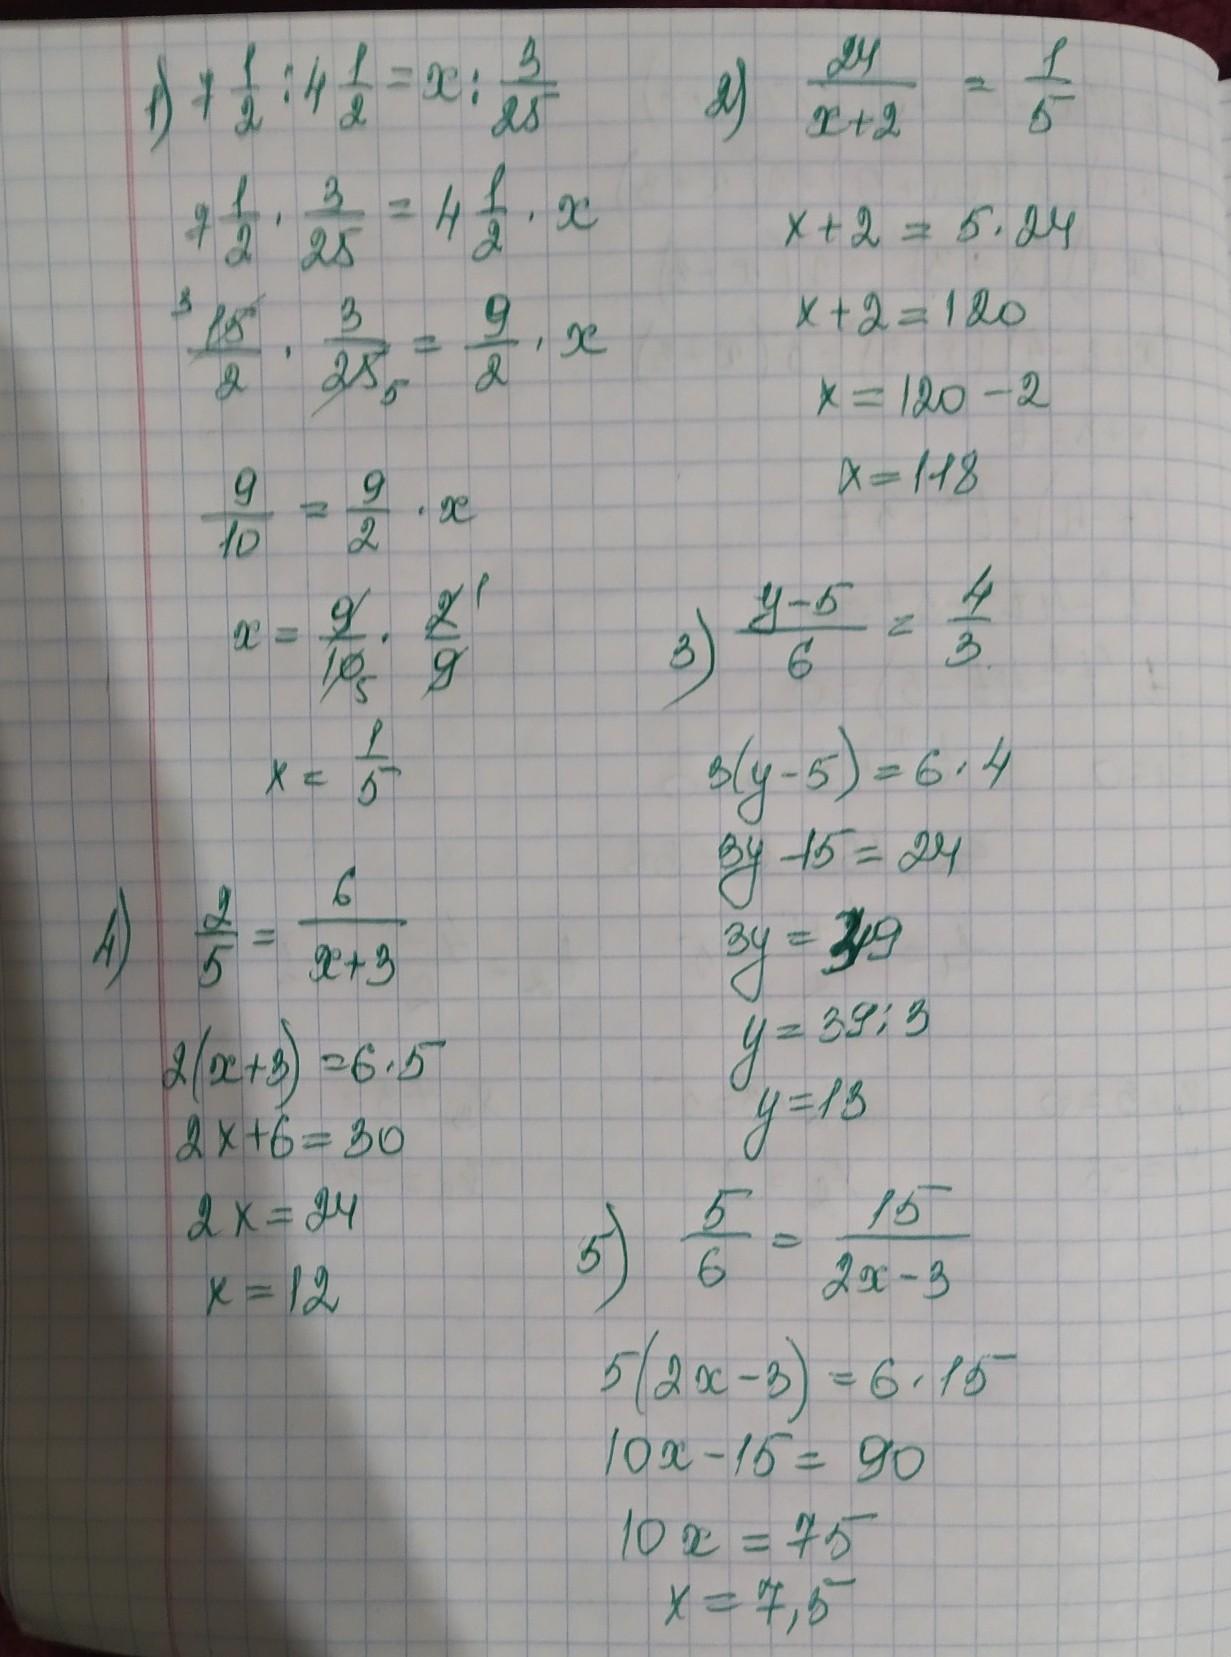 1) 7 1/2 : 4 1/2 = x : 3/25
7 1/2 · 3/25 = 4 1/2 · x
3 15/2 · 3/25 5 = 9/2 · x
9/10 = 9/2 · x
x = 9/10 5 · 2/9 1
x = 1/5
2) 24/(x+2) = 1/5
x + 2 = 5 · 24
x + 2 = 120
x = 120 - 2
x = 118
3) (y-5)/6 = 4/3
3(y - 5) = 6 · 4
3y - 15 = 24
3y = 39
y = 39 : 3
y = 13
4) 2/5 = 6/(x+3)
2(x+3) = 6 · 5
2x + 6 = 30
2x = 24
x = 12
5) 5/6 = 15/(2x-3)
5(2x - 3) = 6 · 15
10x - 15 = 90
10x = 75
x = 7,5